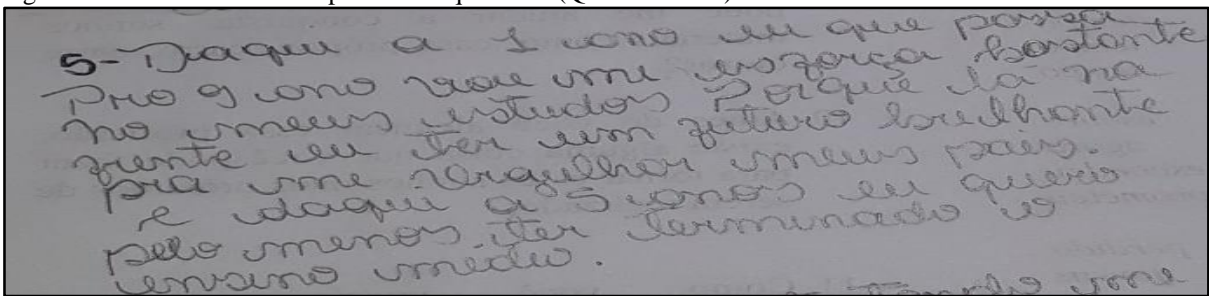 5- Daqui a 1 ano eu que passa
Pro 9 ano vou me esforça bastante
no meus estudos Porque la na
frente eu ter um futuro brilhante
pra me orgulhar meus pais.
e daqui a 5 anos eu queria
pelo menos ter terminado o
ensino medio.